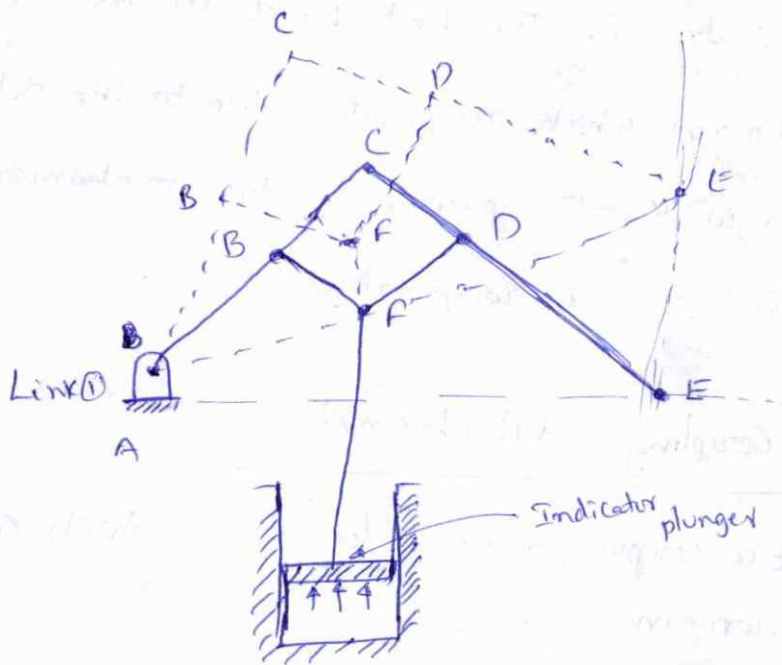 C
D
C
E
B
F
B
D
F
B
Link①
E
A
Indicator
plunger